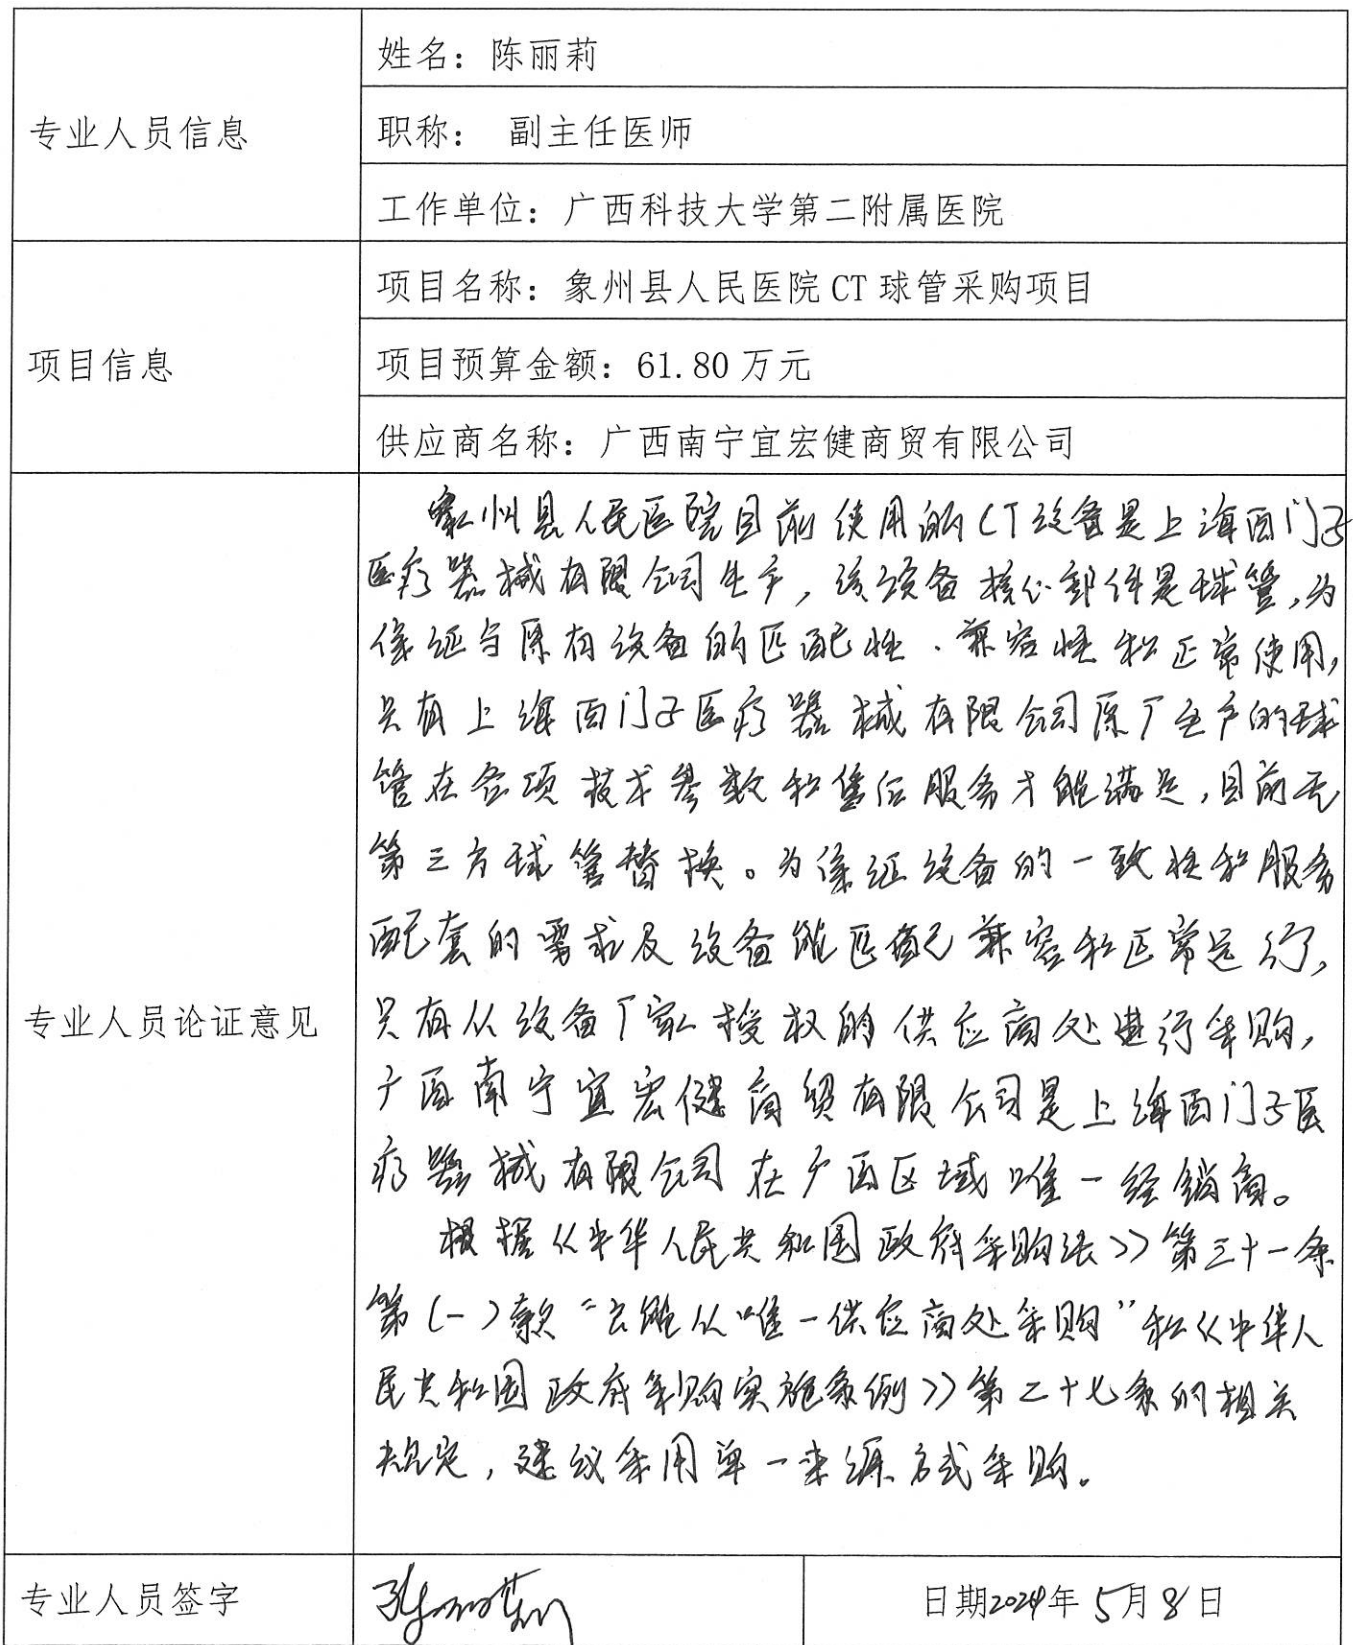 姓名：陈丽莉
专业人员信息
职称： 副主任医师
工作单位：广西科技大学第二附属医院
项目名称：象州县人民医院 CT 球管采购项目
项目信息
项目预算金额：61.80 万元
供应商名称：广西南宁宜宏健商贸有限公司
象州县人民医院目前使用的CT设备是上海西门子
医疗器械有限公司生产，该设备核心部件是球管，为
保证与原有设备的匹配性、兼容性和正常使用，
只有上海西门子医疗器械有限公司原厂生产的球
管在各项技术参数和售后服务才能满足，目前无
第三方球管替换。为保证设备的一致性和服务
配套的需求及设备能匹配兼容和正常运行，
专业人员论证意见
只有从设备厂家授权的供应商处进行采购，
广西南宁宜宏健商贸有限公司是上海西门子医
疗器械有限公司在广西区域唯一经销商。
根据《中华人民共和国政府采购法》第三十一条
第(一)款“只能从唯一供应商处采购”和《中华人
民共和国政府采购实施条例》第二十七条的相关
规定，建议采用单一来源方式采购。
专业人员签字
陈丽莉
日期2024年5月8日